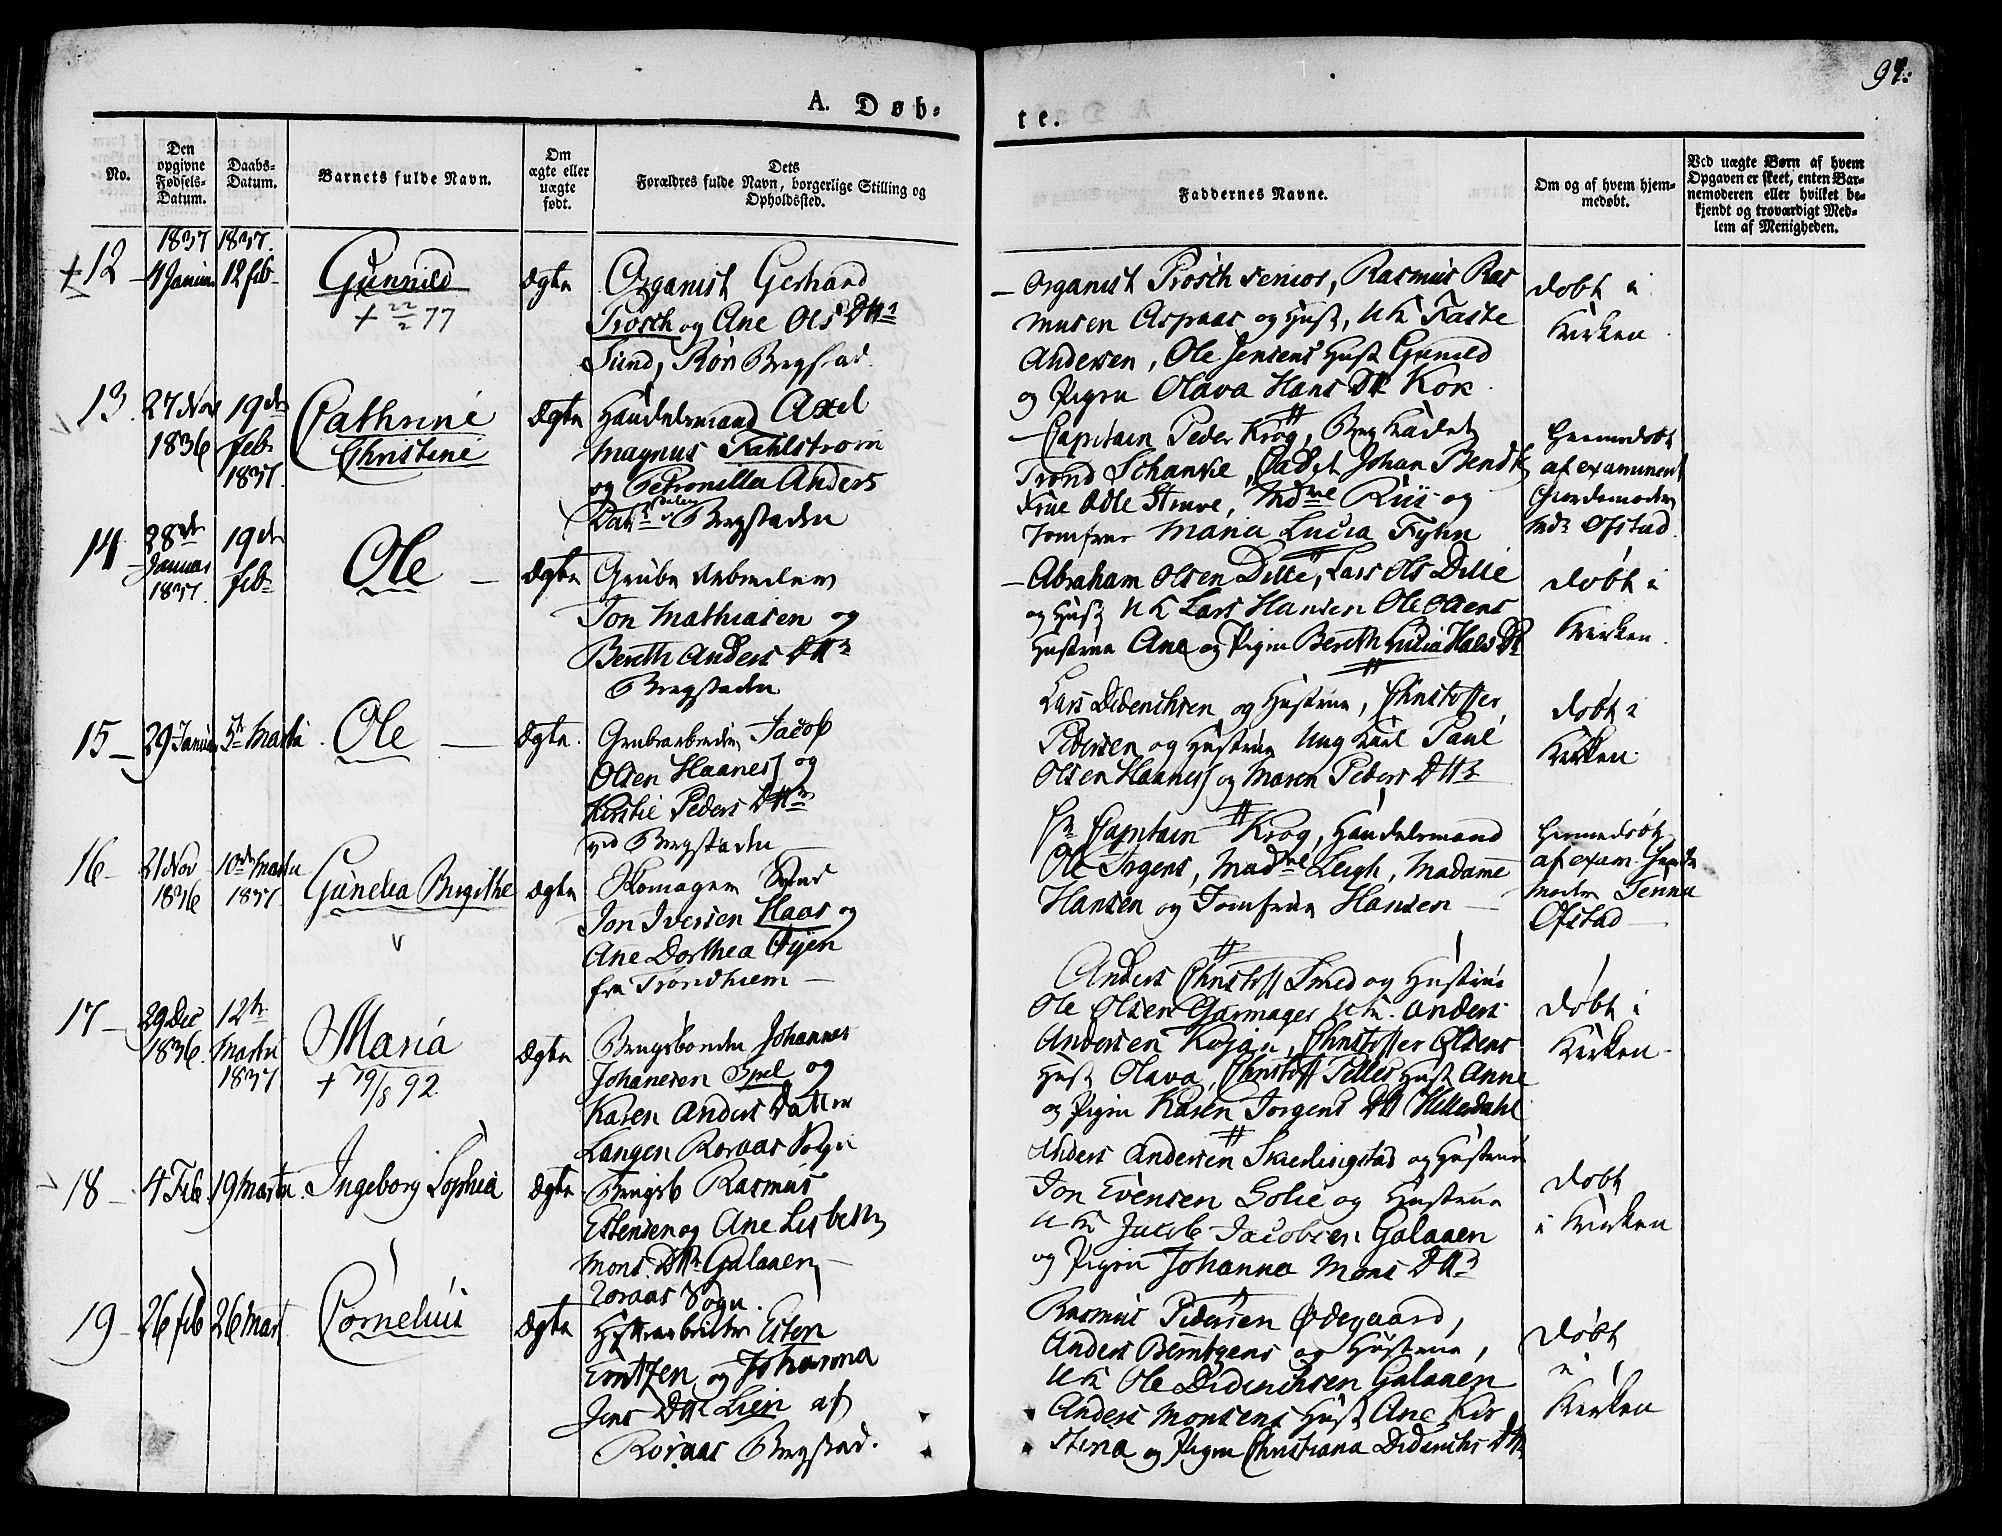 97:
A. Døb-
te.
No.
Den opgivne Fødsels-Datum.
Daabs-Datum.
Barnets fulde Navn.
Om ægte eller uægte født.
Dets Forældres fulde Navn, borgerlige Stilling og Opholdssted.
Faddernes Navne.
Om og af hvem hjemmedøbt.
Ved uægte Børn af hvem
Opgaven er skeet, enten Bar-
nemoderen eller hvilket be-
kjendt og troværdigt Med-
lem af Menigheden.
1837 1837.
12 4 Januar 12 feb Gunnild Ægte Organist Gerhard
+ 22/2 77
Prosch og Ane Ols Dtr
Sund, Røn Bergstad.
Organist Prosch senior, Rasmus Ras
musen Aspaas og Hust, UK Faste
Andersen, Ole Jensens Hust Gunild
og Pigen Olava Hans Dtr Kok.
døbt i
Kirken
13. 27 Nov 1836 19de feb 1837. Cathrine Christine Ægte
Handelsmand Axel
Magnus Fahlstrøm
og Petronilla Anders
Datter Dalen Bergstaden
Capitain Peder Krog, Berg Kadet
Trond Schanke, Cadet Johan Bendt
Frue Odle Steuve, Mdme Riis og
Jomfrue Maria Lucia Fyhn
Hjemmedøbt
af examineret
Gjordemoder
Mdm Ofstad
14 28de Januar 1837. 19de feb Ole Ægte
Grube Arbeider
Jon Mathiasen og
Bereth Anders Dtr
Bergstaden
Abraham Olsen Dille, Lars Ols Dille
og Hust UK Lars Hansen Ole Olsens
Hustrue Ane og Pigen Bereth Lucia Hals Dtr
døbt i
Kirken.
15 29 Januar 5te Martii Ole Ægte.
Grubearbeider Jacob
Olsen Haaness og
Kirstie Peders Dtr
ved Bergstaden
Lars Diderichsen og Hustrue, Christoffer
Pedersen og Hustrue Ung Karl Paul
Olsen Haaness og Maren Peders Dtr
døbt i
Kirken
16 21 Nov 1836 10de Martii 1837 Gunelia Birgithe Ægte
Skomager Svend
Jon Iversen Haas og
Ane Dorthea Øyen
fra Trondhiem
Hr Capitain Krog, Handelsmand
Ole Irgens, Madme Leigh, Madame
Hansen og Jomfrue Hansen
Hjemmedøbt
af exam. Gjorde
moder Jenna
Ofstad
17 29 Dec 1836. 12te Martii 1837 Maria Ægte
+ 19/8 92.
Brugsbonde Johannes
Johanesen Spel og
Karen Anders Datter
Langen Roraas Sogn
Anders Christoff Smed og Hustrue
Ole Olsen Garmager UK. Anders
Andersen Kojan, Christoffer Olsens
Hust Olava, Christoff Pelles Hust Anne
og Pigen Karen Jorgens Dtr Hittedahl
døbt i
Kirken
18 4 Feb 19 Martii Ingeborg Sophia Ægte
Brugsb Rasmus
Estensen og Ane Lisbeth
Mons Dtr Galaaen
Roraas Sogn.
Anders Andersen Skierdingstad og Hustrue
Jon Evensen Solie og Hustrue
UK Jacob Jacobsen Galaaen
og Pigen Johanna Mons Dtr
døbt
i Kirken
19 26 feb 26 Mart Cornelius Ægte
Hyttearbeider Esten
Entzen og Johanna
Jens Dtr Lien af
Roraas Bergstad.
Rasmus Pedersen Ødegaard,
Anders Berntzens og Hustrue,
UK Ole Diderichsen Galaaen
Anders Monsens Hust Ane Kir
stina og Pigen Christiana Diderichs Dtr
døbt
i
Kirken